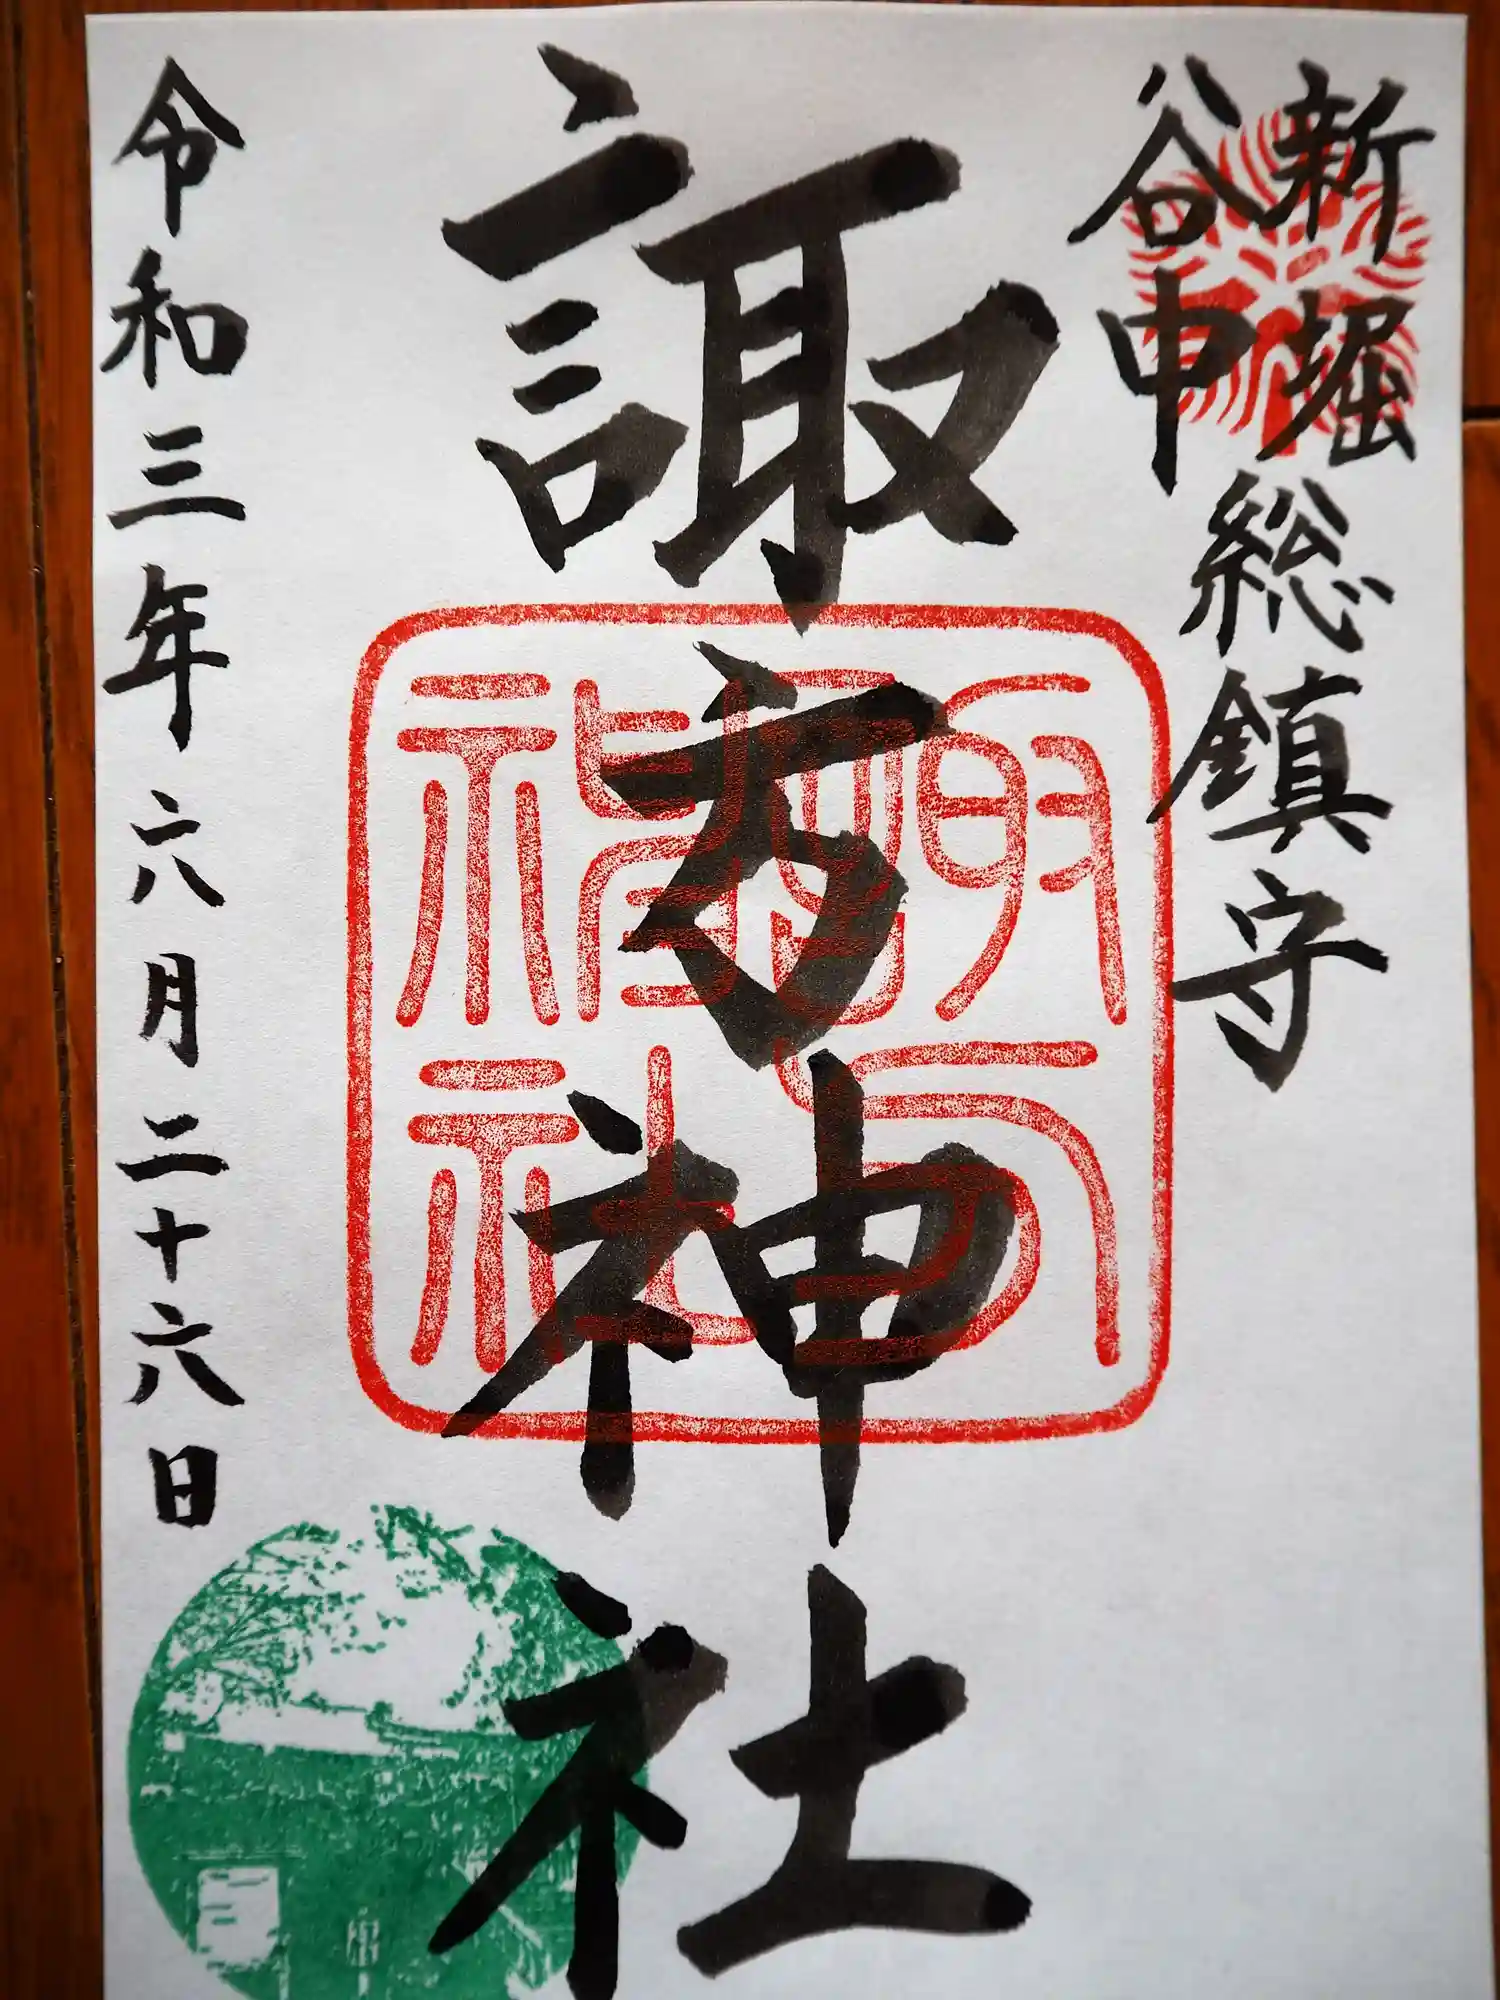 新堀
谷中
総鎮守
諏方神社
令和三年六月二十六日
諏方神社